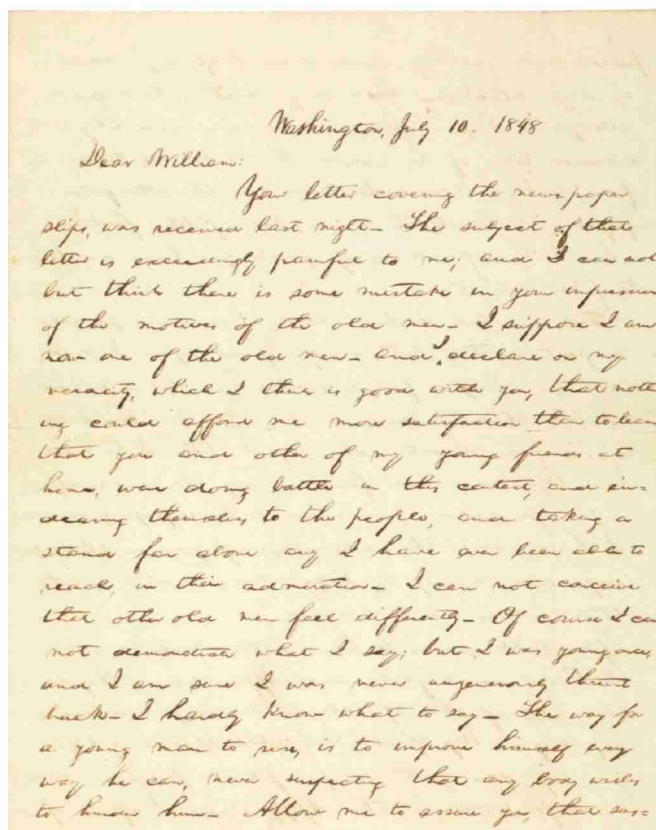 Washington, July 10. 1848
Dear William:
Your letter covering the newspaper
slips, was received last night— The subject of that
letter is exceedingly painful to me; and I can not
but think there is some mistake in your impression
of the motives of the old men— I suppose I am
now one of the old men— and I declare on my
veracity, which I think is good with you, that noth
ing could afford me more satisfaction than to learn
that you and others of my young friends at
home, were doing battle in this contest, and en-
dearing themselves to the people, and taking a
stand far above any I have ever been able to
reach, in their admiration— I can not conceive
that other old men feel differently— Of course I can
not demonstrate what I say; but I was young once,
and I am sure I was never ungenerously thrust
back— I hardly know what to say— The way for
a young man to rise, is to improve himself every
way he can, never suspecting that any body wishes
to hinder him— Allow me to assure you, that sus=